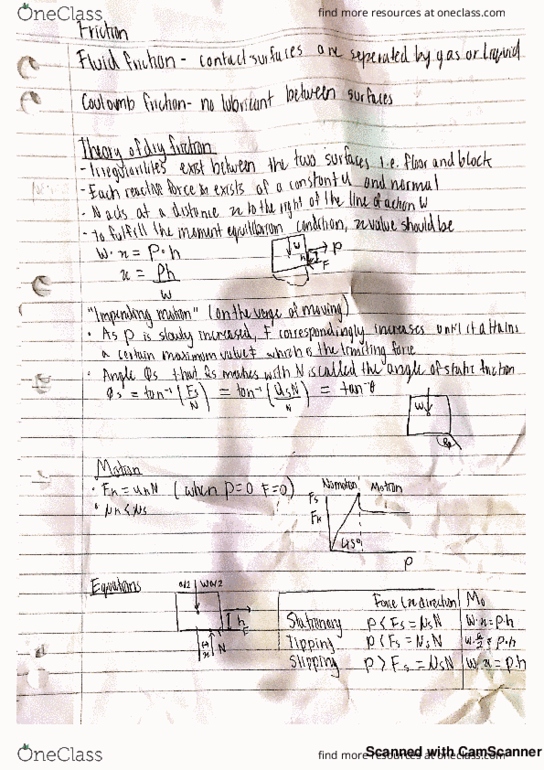 OneClass
find more resources at oneclass.com
Friction
Fluid friction - contact surfaces are seperated by gas or liquid
Couloumb friction - no lubricant between surfaces
Theory of dry friction
- Irregularities exist between the two surfaces i.e. floor and block
- Each reactive force exists at a constant u and normal
- N acts at a distance x to the right of the line of action W
- To fulfill the moment equilibrium condition, x value should be
W·x = P·h
x = Ph
W
W
P
h
F
"Impending motion" (on the verge of moving)
• As P is slowly increased, F correspondingly increases until it attains
a certain maximum value F which is the limiting force
• Angle Φs that Rs makes with N is called the angle of static friction
Φs = tan⁻¹(Fs/N) = tan⁻¹(UsN/N) = tan⁻¹
W
Motion
• Fk = ukN (when P=0 F=0)
• Nk < Ns
No motion Motion
Fs
Fk
45°
P
Equations
a/2 W a/2
h
x
N
Force (x direction) Mo
Stationary P < Fs = NsN W·x = P·h
Tipping P < Fs = NsN W·a/2 = P·h
Slipping P > Fs = NsN W·x = Ph
OneClass
find more resources at oneclass.com
Scanned with CamScanner